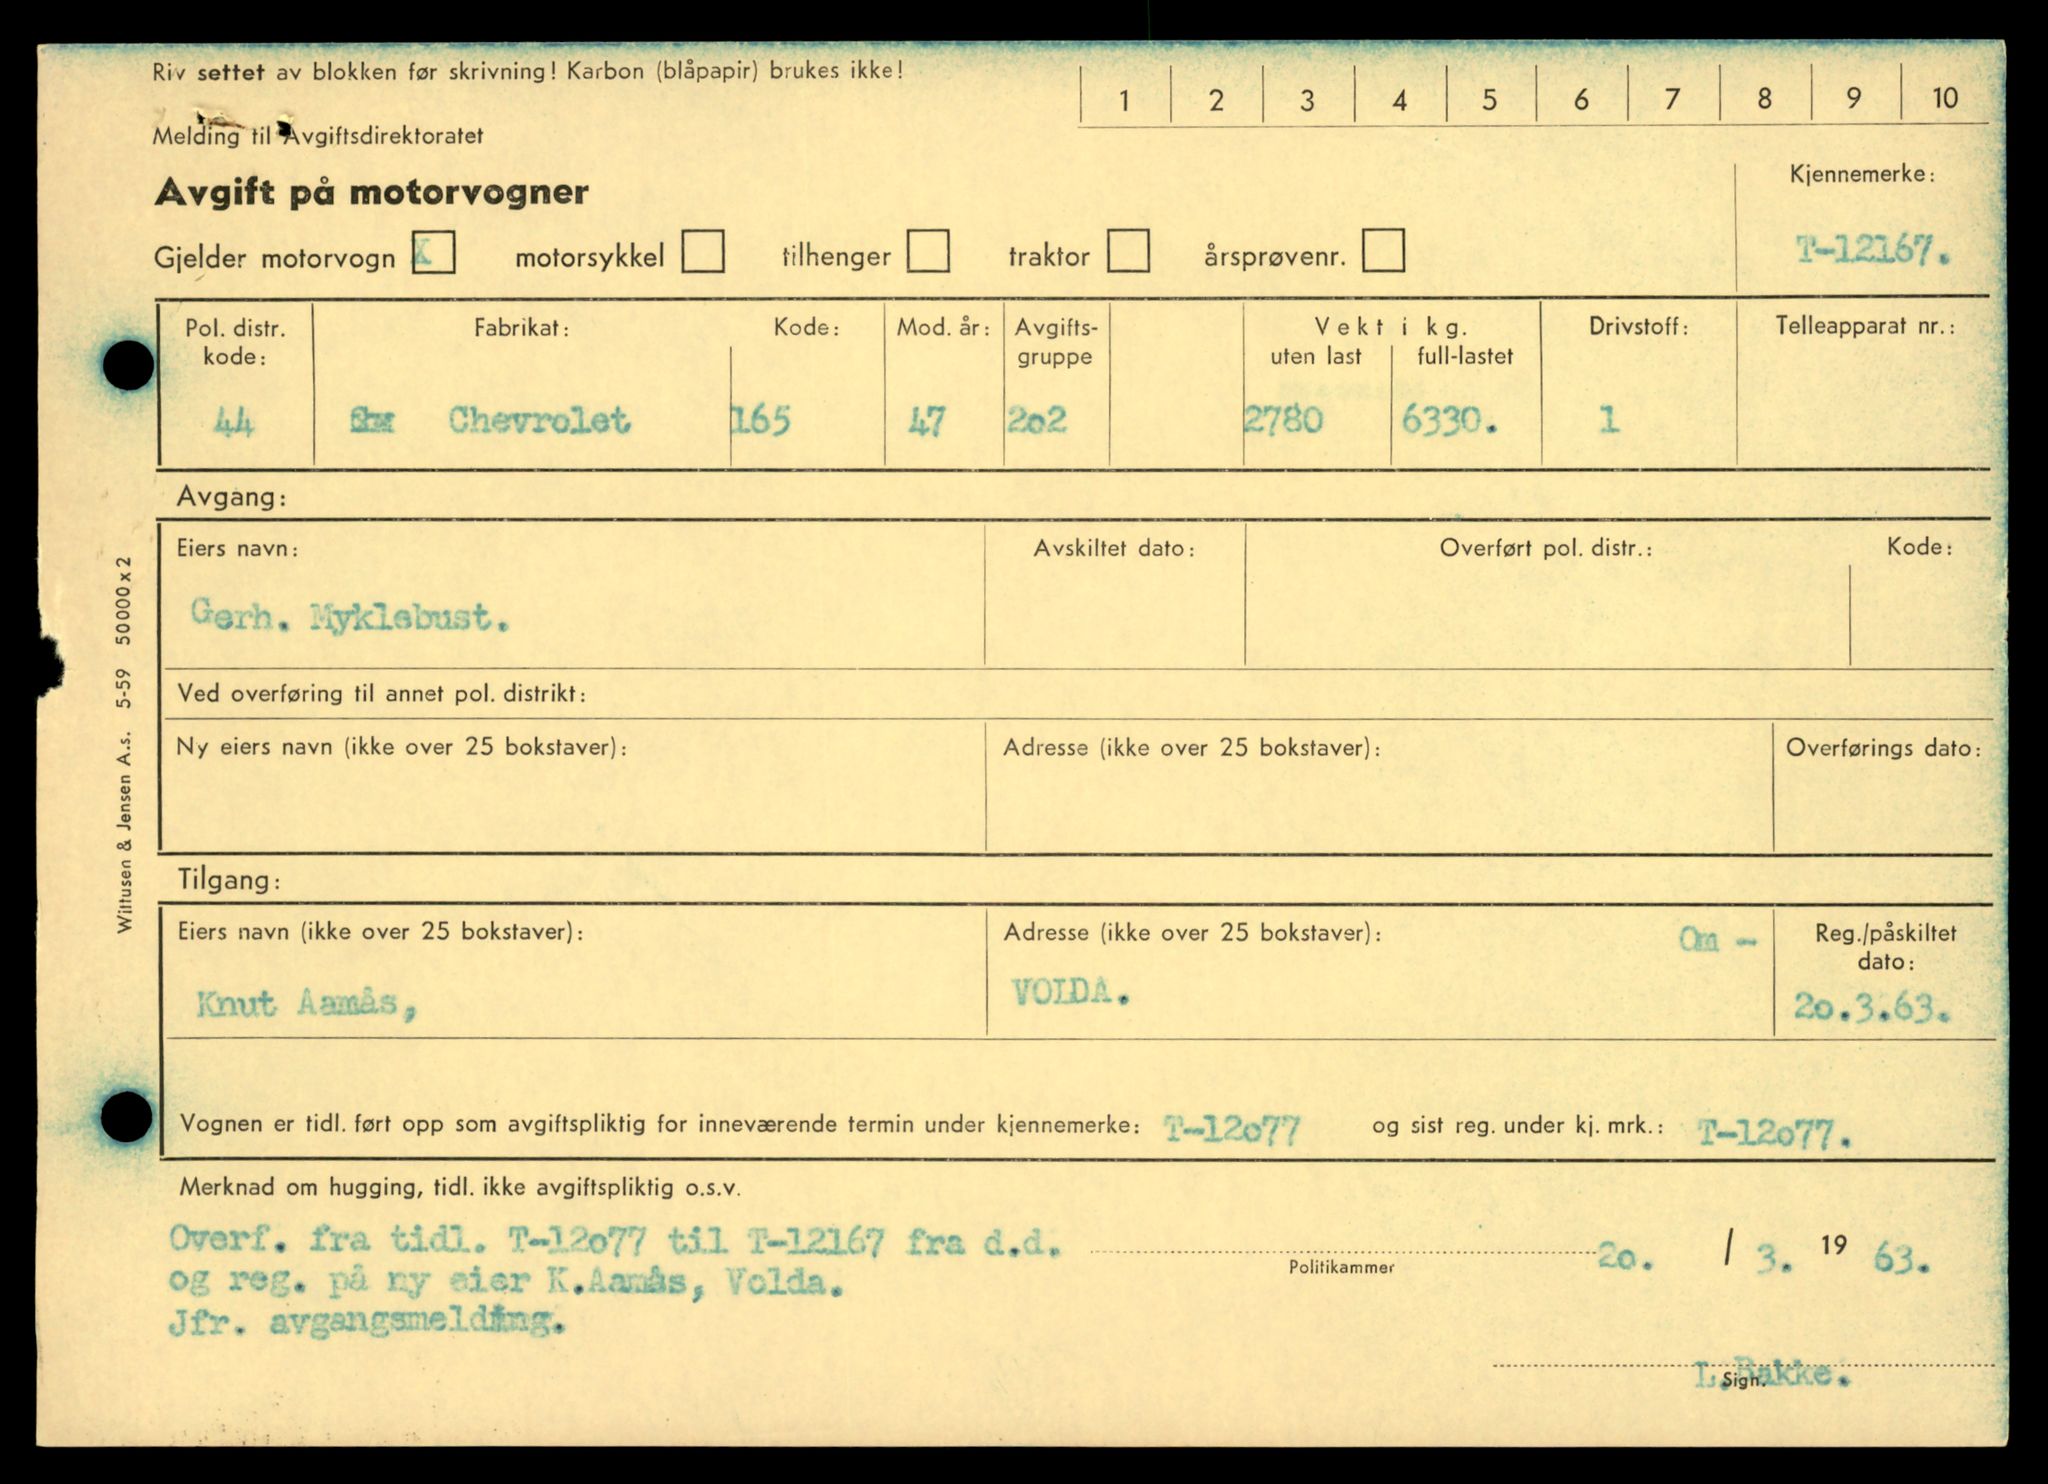 Riv settet av blokken før skrivning! Karbon (blåpapir) brukes ikke!
1 2 3 4 5 6 7 8 9 10
Melding til Avgiftsdirektoratet
Avgift på motorvogner
Kjennemerke:
Gjelder motorvogn X motorsykkel tilhenger traktor årsprøvenr.
T-12167.
Pol. distr. kode:
Fabrikat:
Kode:
Mod. år:
Avgifts-
gruppe
Vekt i kg.
uten last
full-lastet
Drivstoff:
Telleapparat nr.:
44 Chevrolet 165 47 2o2 2780 6330. 1
Avgang:
Eiers navn:
Avskiltet dato:
Overført pol. distr.:
Kode:
Gerh. Myklebust.
Ved overføring til annet pol. distrikt:
Ny eiers navn (ikke over 25 bokstaver):
Adresse (ikke over 25 bokstaver):
Overførings dato:
Tilgang:
Eiers navn (ikke over 25 bokstaver):
Adresse (ikke over 25 bokstaver):
Om -
Reg./påskiltet
dato:
Knut Aamås,
VOLDA.
2o.3.63.
Vognen er tidl. ført opp som avgiftspliktig for inneværende termin under kjennemerke: T-12o77 og sist reg. under kj. mrk.: T-12o77.
Merknad om hugging, tidl. ikke avgiftspliktig o.s.v.
Overf. fra tidl. T-12o77 til T-12167 fra d.d.
og reg. på ny eier K.Aamås, Volda.
Jfr. avgangsmelding.
Politikammer
2o. / 3. 19 63.
L.Bakke.
Sign.
Wittusen & Jensen A.s. 5-59 50000x2